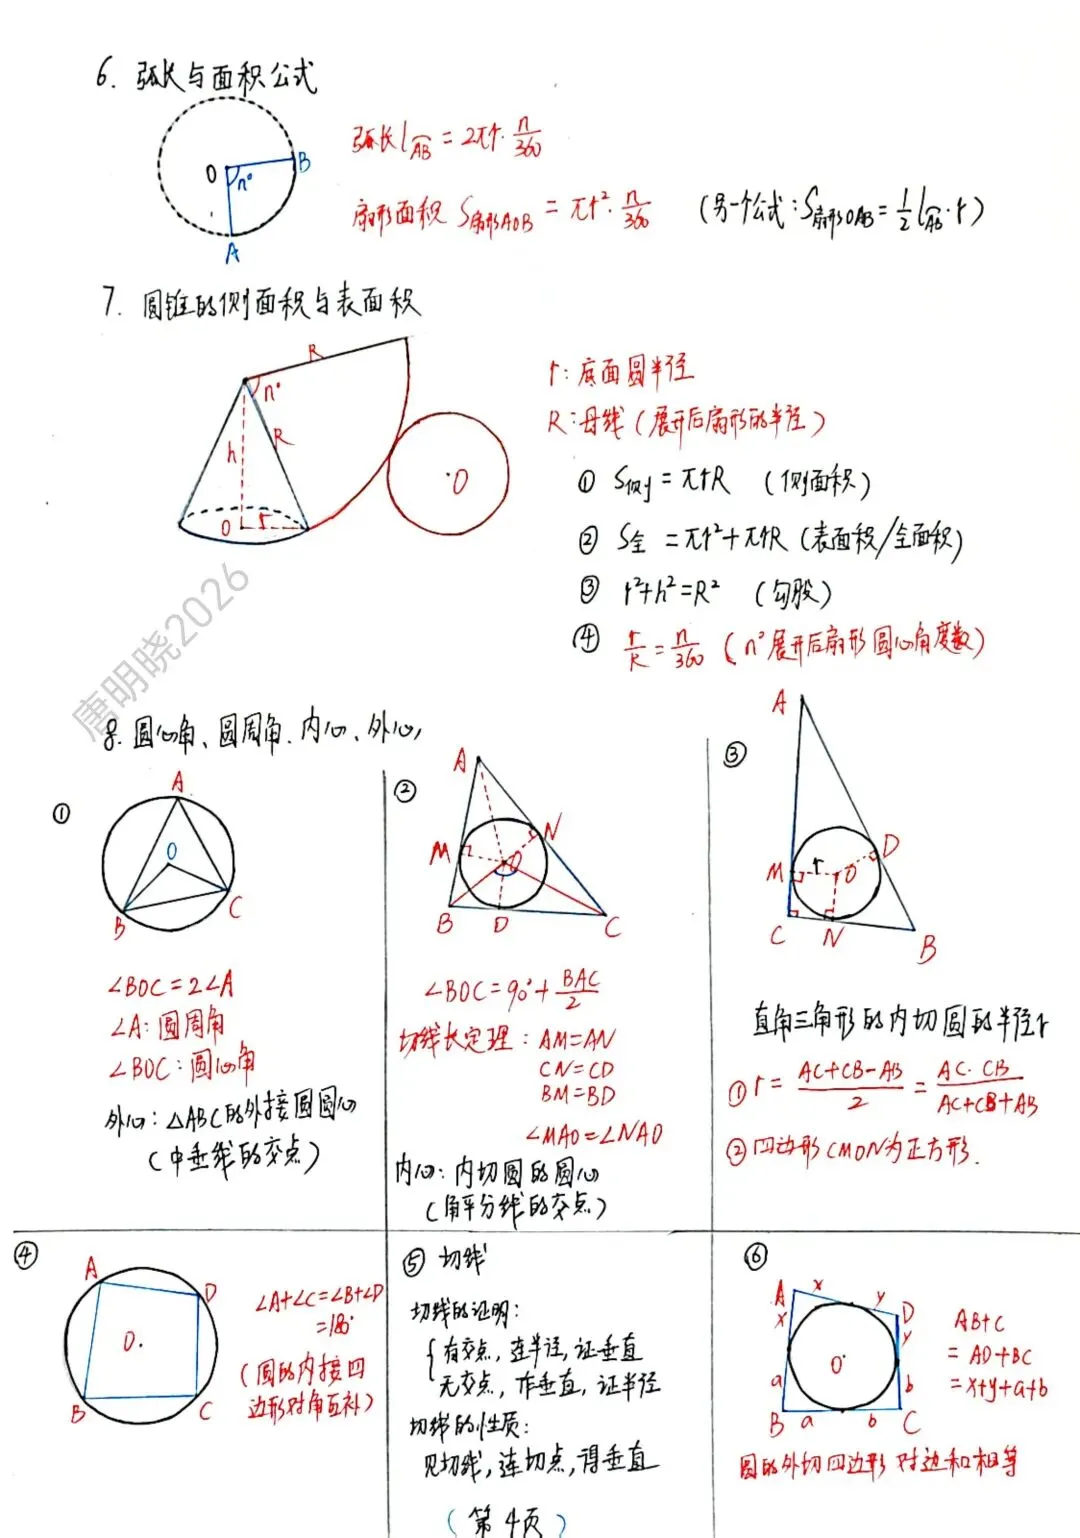 6. 弧长与面积公式
O
n°
B
A
弧长l⌒AB = 2πr·n/360
扇形面积 S扇形AOB = πr²·n/360 (另一个公式:S扇形OAB=1/2 l⌒AB·r)
7. 圆锥的侧面积与表面积
R
n°
R
h
O
r
O
r:底面圆半径
R:母线(展开后扇形的半径)
① S侧=πrR (侧面积)
② S全 =πr²+πrR (表面积/全面积)
③ r²+h²=R² (勾股)
④ r/R=n/360 (n°展开后扇形圆心角度数)
唐明晓2026
8. 圆心角、圆周角、内心、外心,
①
A
O
B
C
∠BOC=2∠A
∠A:圆周角
∠BOC:圆心角
外心:△ABC的外接圆圆心
(中垂线的交点)
②
A
M
N
O
B
D
C
∠BOC=90°+BAC/2
切线长定理:AM=AN
CN=CD
BM=BD
∠MAO=∠NAO
内心:内切圆的圆心
(角平分线的交点)
③
A
M
r
O
D
C
N
B
直角三角形的内切圆的半径r
① r=AC+CB-AB/2=AC·CB/AC+CB+AB
② 四边形CMON为正方形.
④
A
D
O
B
C
∠A+∠C=∠B+∠D
=180°
(圆的内接四
边形对角互补)
⑤ 切线
切线的证明:
{有交点,连半径,证垂直
无交点,作垂直,证半径
切线的性质:
见切线,连切点,得垂直
⑥
A
x
y
D
x
y
O
a
b
B
a
b
C
AB+C
=AD+BC
=x+y+a+b
圆的外切四边形对边和相等
(第4页)